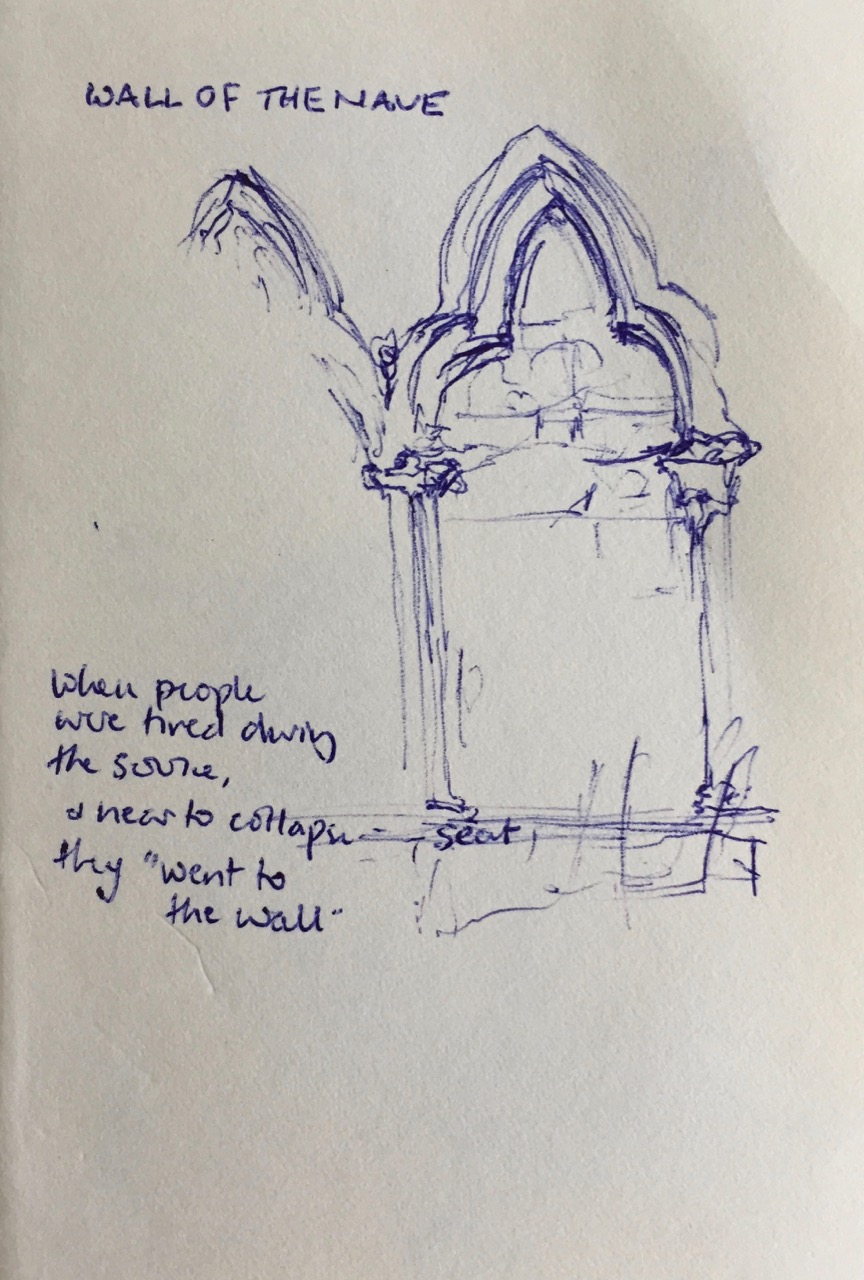 WALL OF THE NAVE
When people
were tired during
the service,
& near to collapse
they "went to
the wall"
seat